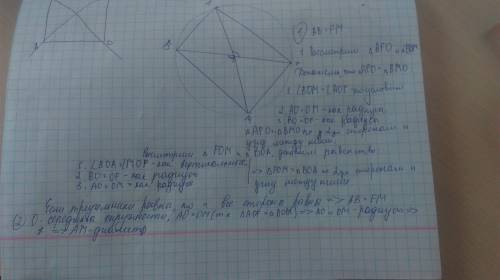 ① AB = FM
1. Рассмотрим △AFO и △BOM
Докажем, что △AFO = △BMO
1. ∠BOM = ∠AOF по условию
2. AO = OM - как радиусы
3. BO = OF - как радиусы
△AFO = △BMO по 2ум сторонам и
углу между ними.
Рассмотрим △ FOM и △BOA, докажем равенство
1. ∠BOA = ∠MOF - как вертикальные
2. BO = OF - как радиусы
3. AO = OM - как радиусы
=> △FOM = △BOA по 2ум сторонам и
углу между ними
Если треугольники равны, то и все стороны равны => AB = FM
② O - середина окружности, AO = OM (т.к △AOF = △BOM) => AO и OM - радиусы =>
=> AM - диаметр